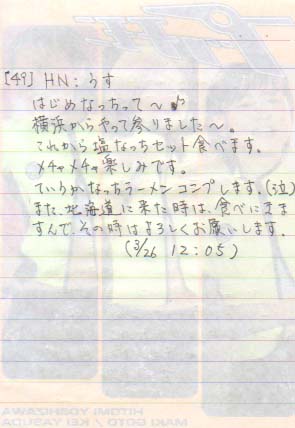 [49] HN: うす
はじめなっちって～♪
横浜からやって参りました～。
これから塩なっちセット食べます。
メチャメチャ楽しみです。
ていうかなっちラーメンコンプします。(泣)
また、北海道に来た時は、食べにきま
すんで、その時はよろしくお願いします。
(3/26 12:05)
HITOMI YOSHIZAWA
MAKI GOTO / KEI YASUDA